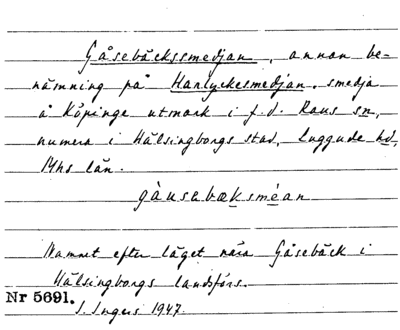 Gåsebäckssmedjan, annan be-
nämning på Harlyckesmedjan, smedja
å Köpinge utmark i f.d. Raus sn,
numera i Hälsingborgs stad, Luggude hd,
Mhs län.
gàusabæksméan
Namnet efter läget nära Gåsebäck i
Hälsingborgs landsförs.
Nr 5691.
I. Ingers 1947.